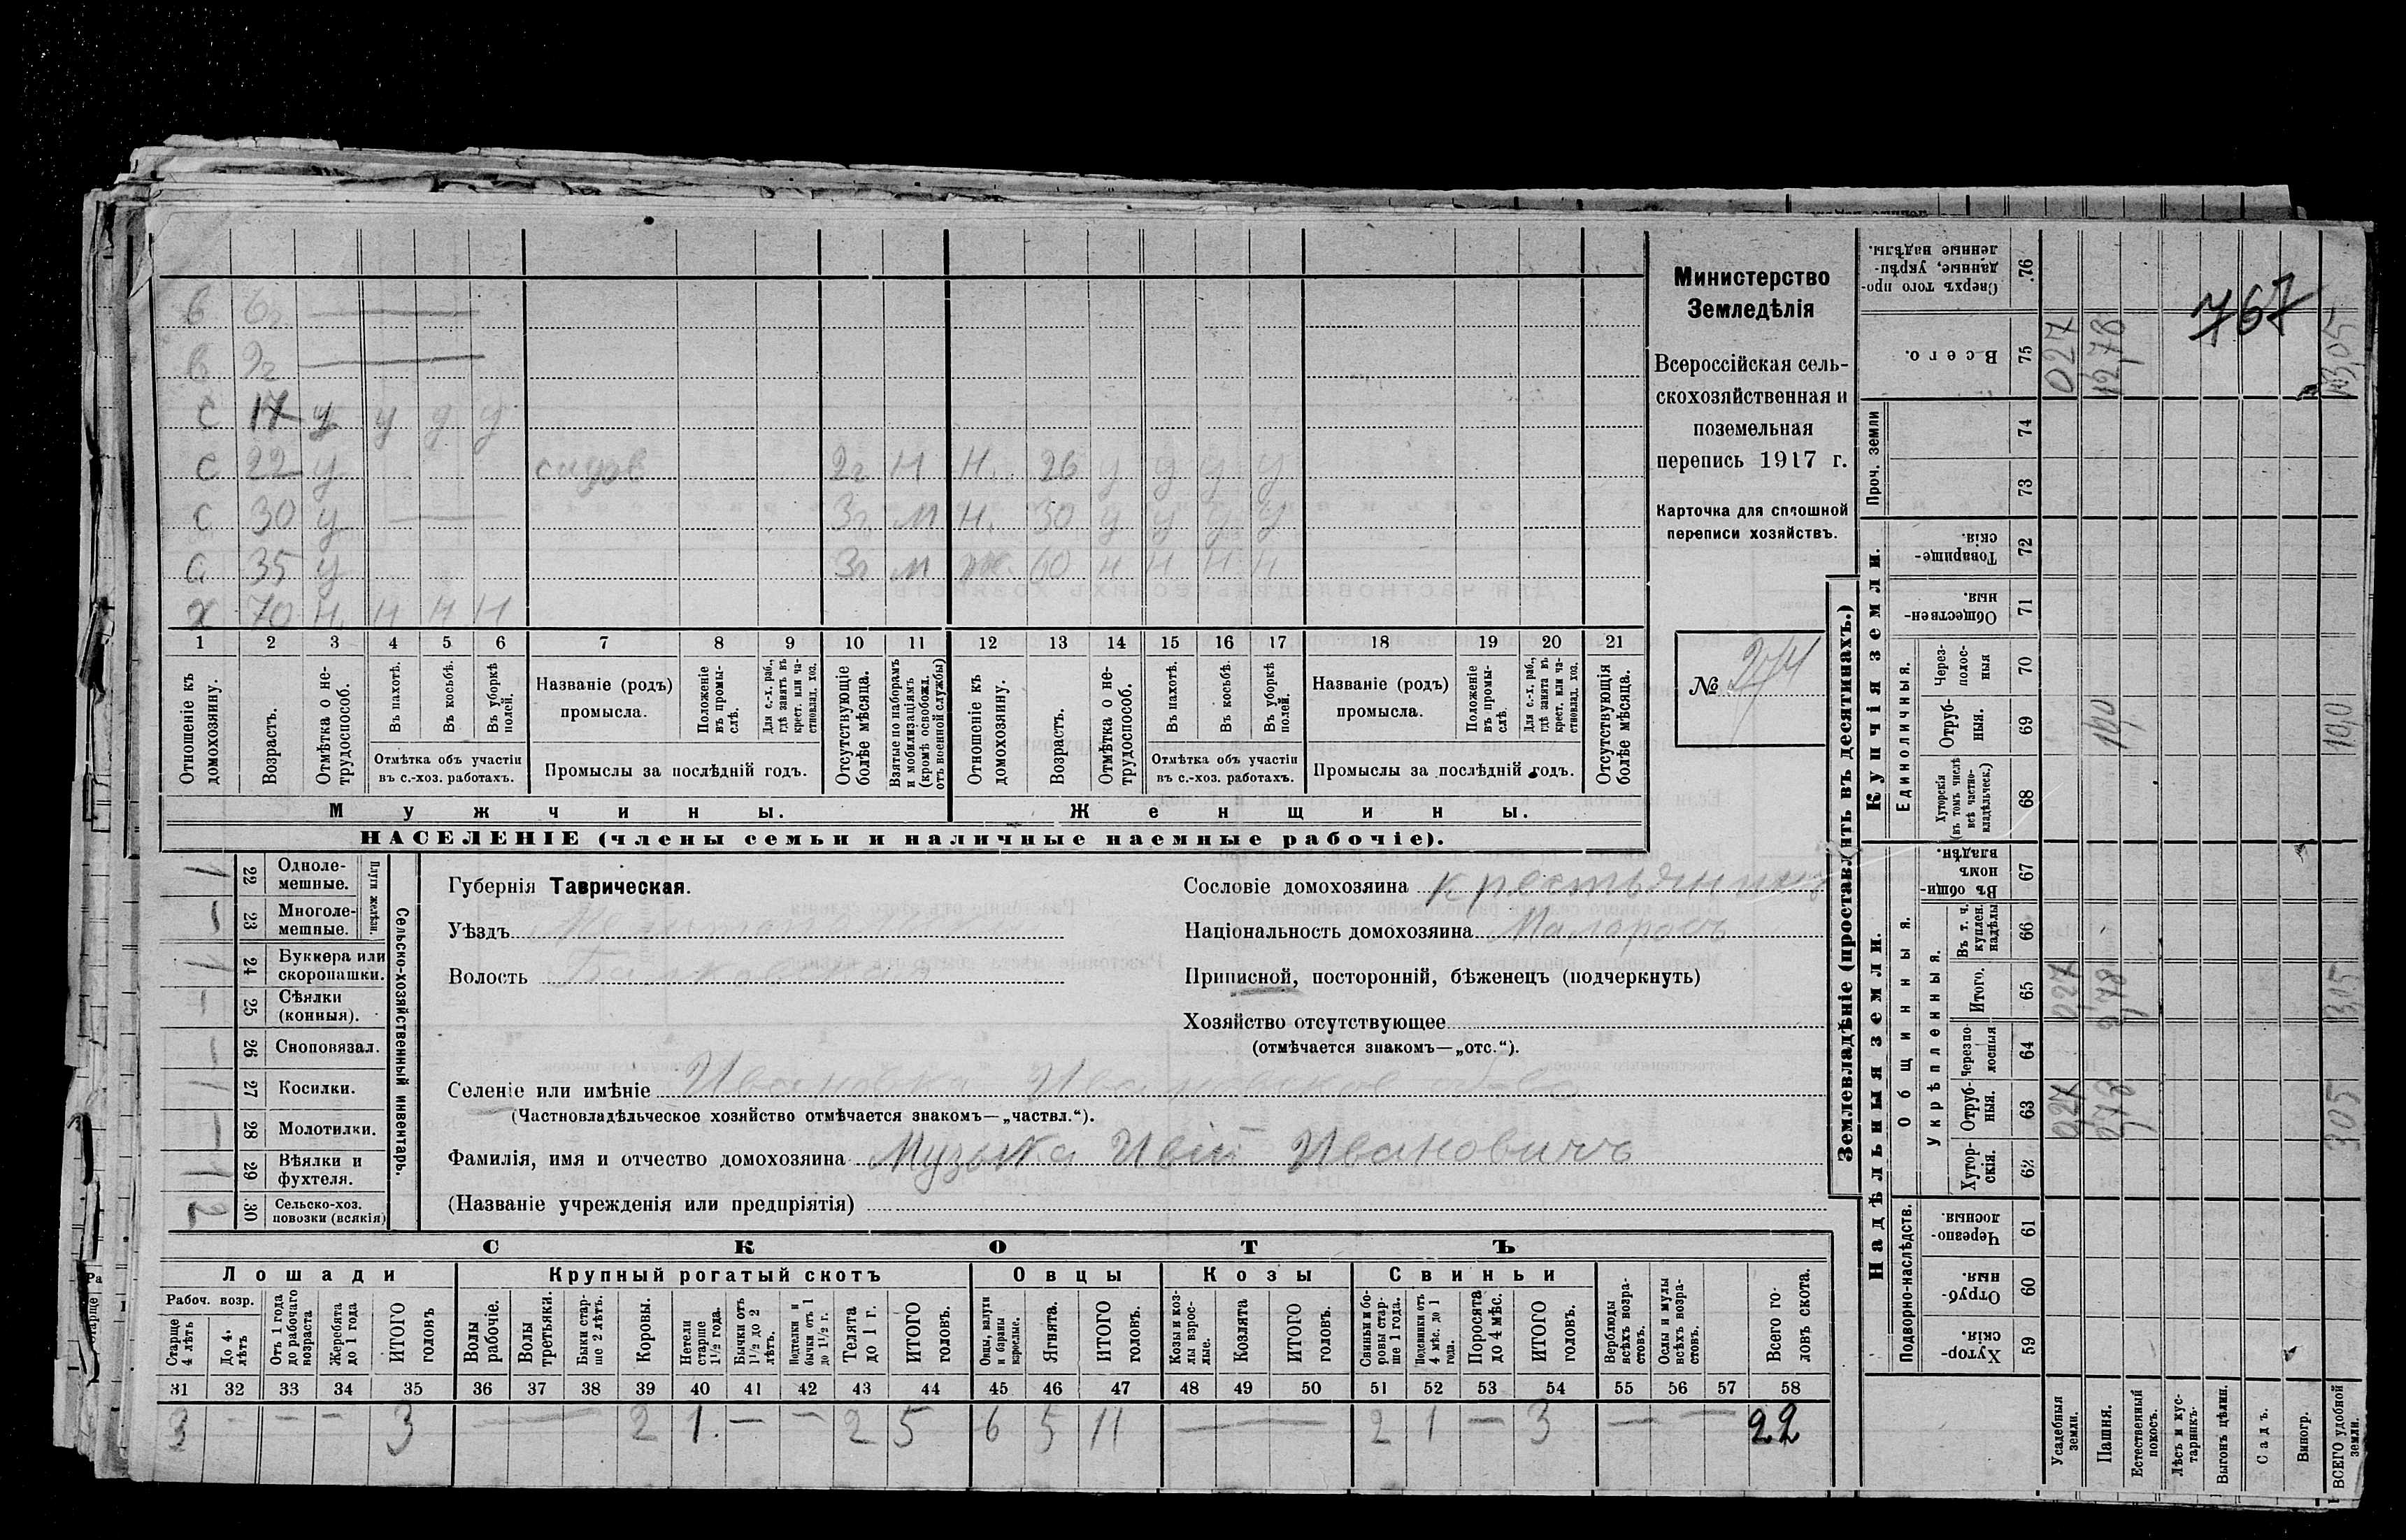 767
Министерство
Земледѣлія
Всероссійская сель-
скохозяйственная и
поземельная
перепись 1917 г.
Карточка для сплошной
переписи хозяйствъ.
№ 274
в 6г
в 2г
с 17 у у у у
с 22 у 2г Н Н. 26 у у у у
с 30 у 3г М Н. 30 у у у у
с 35 у 3г М ж. 60 н н н н
х 70 н. н н н
1 2 3 4 5 6 7 8 9 10 11 12 13 14 15 16 17 18 19 20 21
Отношеніе къ домохозяину.
Возрастъ.
Отмѣтка о не-трудоспособ.
Въ пахотѣ.
Въ косьбѣ.
Въ уборкѣ полей.
Отмѣтка объ участіи въ с.-хоз. работахъ.
Названіе (родъ) промысла.
Положеніе въ промы-слѣ.
Для с.-х. раб., гдѣ занятъ въ крест. или ча-стновлад. хоз.
Промыслы за послѣдній годъ.
Отсутствующіе болѣе мѣсяца.
Взятые по наборамъ и мобилизаціямъ (кромѣ освобожд. отъ военной службы)
Отношеніе къ домохозяину.
Возрастъ.
Отмѣтка о не-трудоспособ.
Въ пахотѣ.
Въ косьбѣ.
Въ уборкѣ полей.
Отмѣтка объ участіи въ с.-хоз. работахъ.
Названіе (родъ) промысла.
Положеніе въ промы-слѣ.
Для с.-х. раб., гдѣ занята въ крест. или ча-стновлад. хоз.
Промыслы за послѣдній годъ.
Отсутствующія болѣе мѣсяца.
Мужчины. Женщины.
НАСЕЛЕНІЕ (члены семьи и наличные наемные рабочіе).
Сельско-хозяйственный инвентарь.
Плуги желѣзн.
1 22 Одноле-мешные.
1 23 Многоле-мешные.
1 24 Буккера или скоропашки.
– 25 Сѣялки (конныя).
– 26 Сноповязал.
1 27 Косилки.
– 28 Молотилки.
1 29 Вѣялки и фухтеля.
2 30 Сельско-хоз. повозки (всякія)
Губернія Таврическая.
Уѣздъ
Волость
Сословіе домохозяина крестьянинъ
Національность домохозяина Малороссъ
Приписной, посторонній, бѣженецъ (подчеркнуть)
Хозяйство отсутствующее
(отмѣчается знакомъ—„отс.“).
Селеніе или имѣніе Ивановка
(Частновладѣльческое хозяйство отмѣчается знакомъ—„частвл.“).
Фамилія, имя и отчество домохозяина Музыка Ивановичъ
(Названіе учрежденія или предпріятія)
СКОТЪ
Лошади Крупный рогатый скотъ Овцы Козы Свиньи
Рабоч. возр.
Старше 4 лѣтъ
До 4 лѣтъ
Отъ 1 года до рабочаго возраста
Жеребята до 1 года
ИТОГО головъ
Волы рабочіе.
Волы третьяки.
Быки стар-ше 2 лѣтъ.
Коровы.
Нетели старше 1½ года.
Бычки отъ 1½ до 2 лѣтъ.
Подтелки и бычки отъ 1 до 1½ г.
Телята до 1 г.
ИТОГО головъ.
Овцы, валухи и бараны взрослые.
Ягнята.
ИТОГО головъ.
Козы и коз-лы взрос-лые.
Козлята
ИТОГО головъ.
Свиньи и бо-ровы стар-ше 1 года.
Подсвинки отъ 4 мѣс. до 1 года.
Поросята до 4 мѣс.
ИТОГО головъ.
Верблюды всѣхъ возра-стовъ.
Ослы и мулы всѣхъ возра-стовъ.
Всего го-ловъ скота.
31 32 33 34 35 36 37 38 39 40 41 42 43 44 45 46 47 48 49 50 51 52 53 54 55 56 57 58
3 – – – 3 — 2 1. – – 2 5 6 5 11 — 2 1 – 3 – – 22
Землевладѣніе (проставлять въ десятинахъ.)
Надѣльныя земли. Купчія земли.
Подворно-наслѣдств.
Общинныя.
Укрѣпленныя.
Единоличныя.
Проч. земли
Хутор-скія. 59
Отруб-ныя. 60
Черезпо-лосныя. 61
Хутор-скія. 62
Отруб-ныя. 63
Черезпо-лосныя 64
Итого. 65
Въ т. ч. куплен. надѣлы 66
Въ общин-номъ владѣн. 67
Хуторскія (въ томъ числѣ всѣ частно-владѣльческ.) 68
Отруб-ныя. 69
Через-полос-ныя 70
Обществен-ныя. 71
Товарище-скія. 72
73
74
Всего. 75
Сверхъ того про-данные, укрѣп-ленные надѣлы. 76
Усадебныя земли. 027 027 027
Пашня. 278 2,78 10,0 12,78
Естественный покосъ.
Лѣсъ и кус-тарникъ.
Выгонъ цѣлин.
Садъ.
Виногр.
ВСЕГО удобной земли. 305 3,05 10,0 13,05